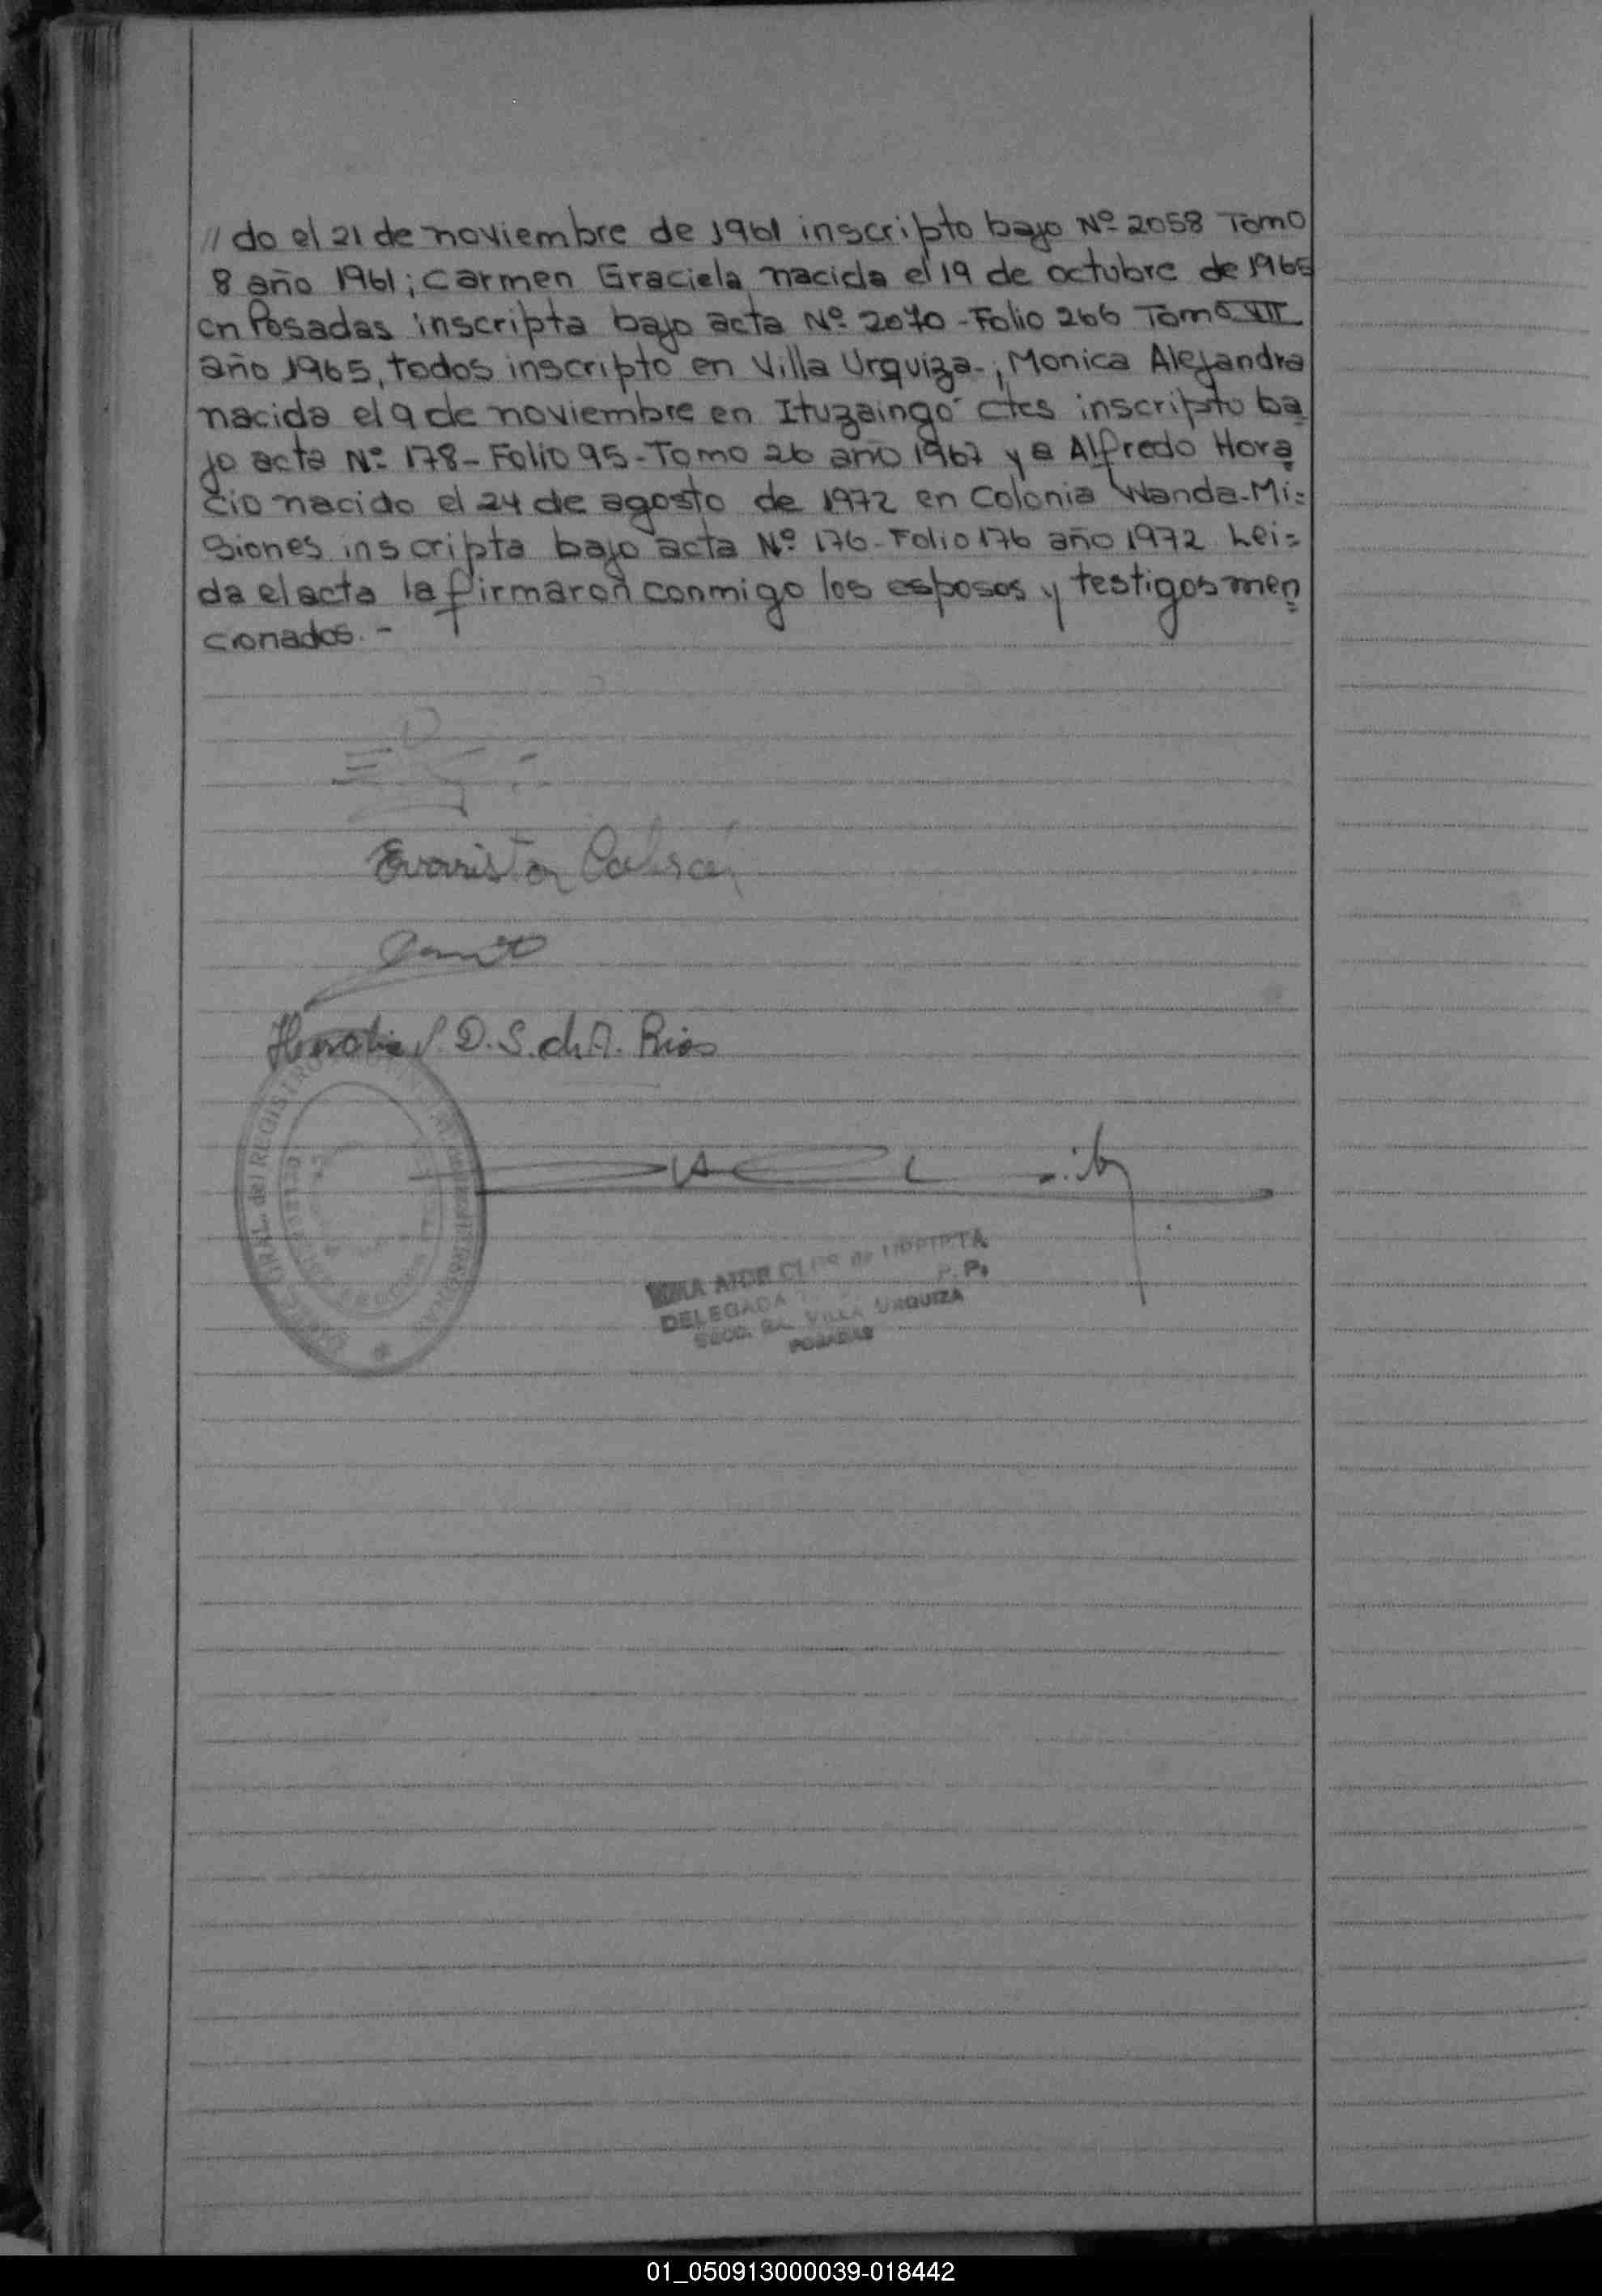 // do el 21 de noviembre de 1961 inscripto bajo Nº 2058 Tomo
8 año 1961; Carmen Graciela nacida el 19 de octubre de 1965
en Posadas inscripta bajo acta Nº 2070 - Folio 266 Tomo VII
año 1965, todos inscripto en Villa Urquiza-, Monica Alejandra
nacida el 9 de noviembre en Ituzaingó Ctes inscripto ba
jo acta Nº 178 - Folio 95 - Tomo 26 año 1967 y a Alfredo Hora
cio nacido el 24 de agosto de 1972 en Colonia Wanda-Mi=
siones inscripta bajo acta Nº 176 - Folio 176 año 1972 Lei=
da el acta la firmaron conmigo los esposos y testigos men
cionados. -
D. S. de A. Rios
del REGISTRO
DELEGADA
VILLA URQUIZA
POSADAS
01_050913000039-018442